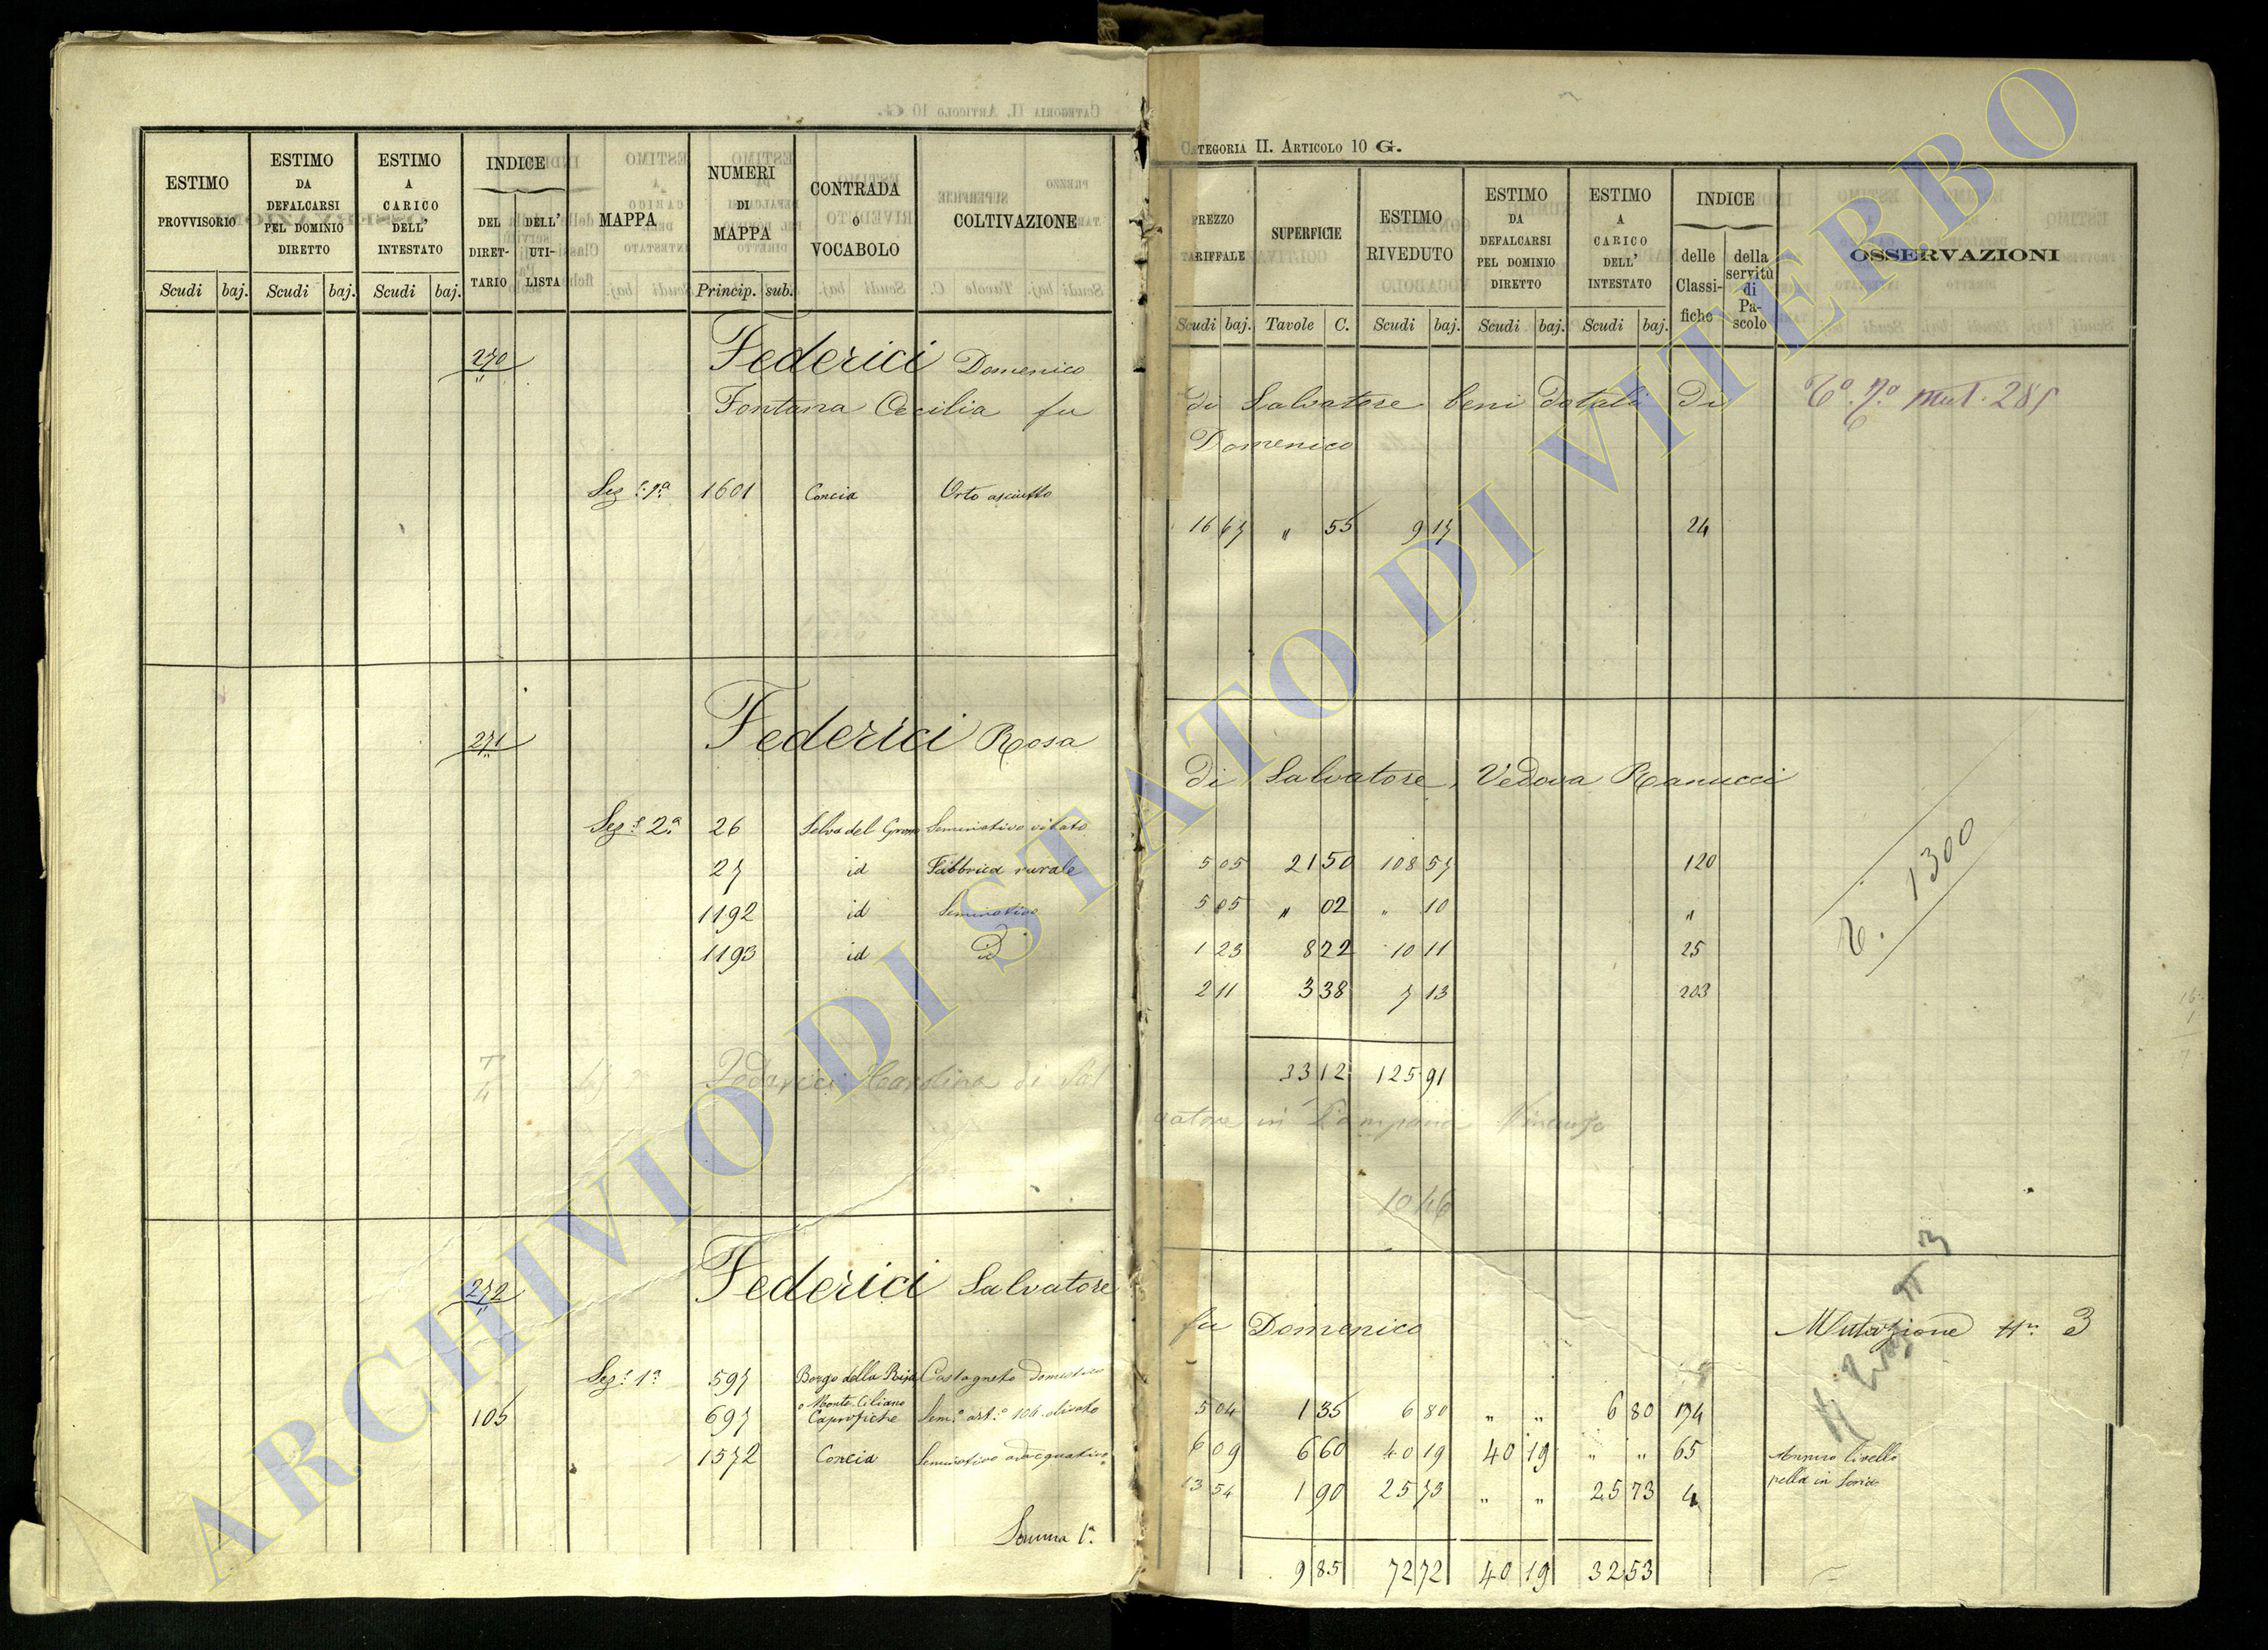 ESTIMO PROVVISORIO
ESTIMO DA DEFALCARSI PEL DOMINIO DIRETTO
ESTIMO A CARICO DELL' INTESTATO
INDICE
DEL DIRET-TARIO
DELL' UTI-LISTA
MAPPA
NUMERI DI MAPPA
CONTRADA O VOCABOLO
COLTIVAZIONE
Scudi baj. Scudi baj. Scudi baj. Princip. sub.
270 Federici Domenico
Fontana Cecilia fu
Sez.e 1ª 1601 Concia Orto asciutto
271 Federici Rosa
Sez.e 2ª 26 Selva del Grano Seminativo vitato
27 id Fabbrica rurale
1192 id Seminativo
1193 id id
Federici Carolina di Sal
272 Federici Salvatore
Sez.e 1ª 597 Borgo della Castagneto domestico
o Monte Ciliano
105 697 Caprofiche Sem.o art.o 106 olivato
1572 Concia Seminativo adacquativo
Somma 1ª
CATEGORIA II. ARTICOLO 10 G.
PREZZO TARIFFALE
SUPERFICIE
ESTIMO RIVEDUTO
ESTIMO DA DEFALCARSI PEL DOMINIO DIRETTO
ESTIMO A CARICO DELL' INTESTATO
INDICE
delle Classi-fiche
della servitù di Pa-scolo
OSSERVAZIONI
Scudi baj. Tavole C. Scudi baj. Scudi baj. Scudi baj.
di Salvatore beni dotali di
mut. 285
Domenico
16 67 " 55 9 17 24
di Salvatore, Vedova Ranucci
5 05 21 50 108 57 120
5 05 " 02 " 10 "
1 23 8 22 10 11 25
2 11 3 38 7 13 203
33 12 125 91
1300
vatore in Campana Vincenzo
1046
fu Domenico
Mutazione N. 3
5 04 1 35 6 80 " " 6 80 174
6 09 6 60 40 19 40 19 " " 65 Annuo livello
13 54 1 90 25 73 " " 25 73 4
9 85 72 72 40 19 32 53
ARCHIVIO DI STATO DI VITERBO